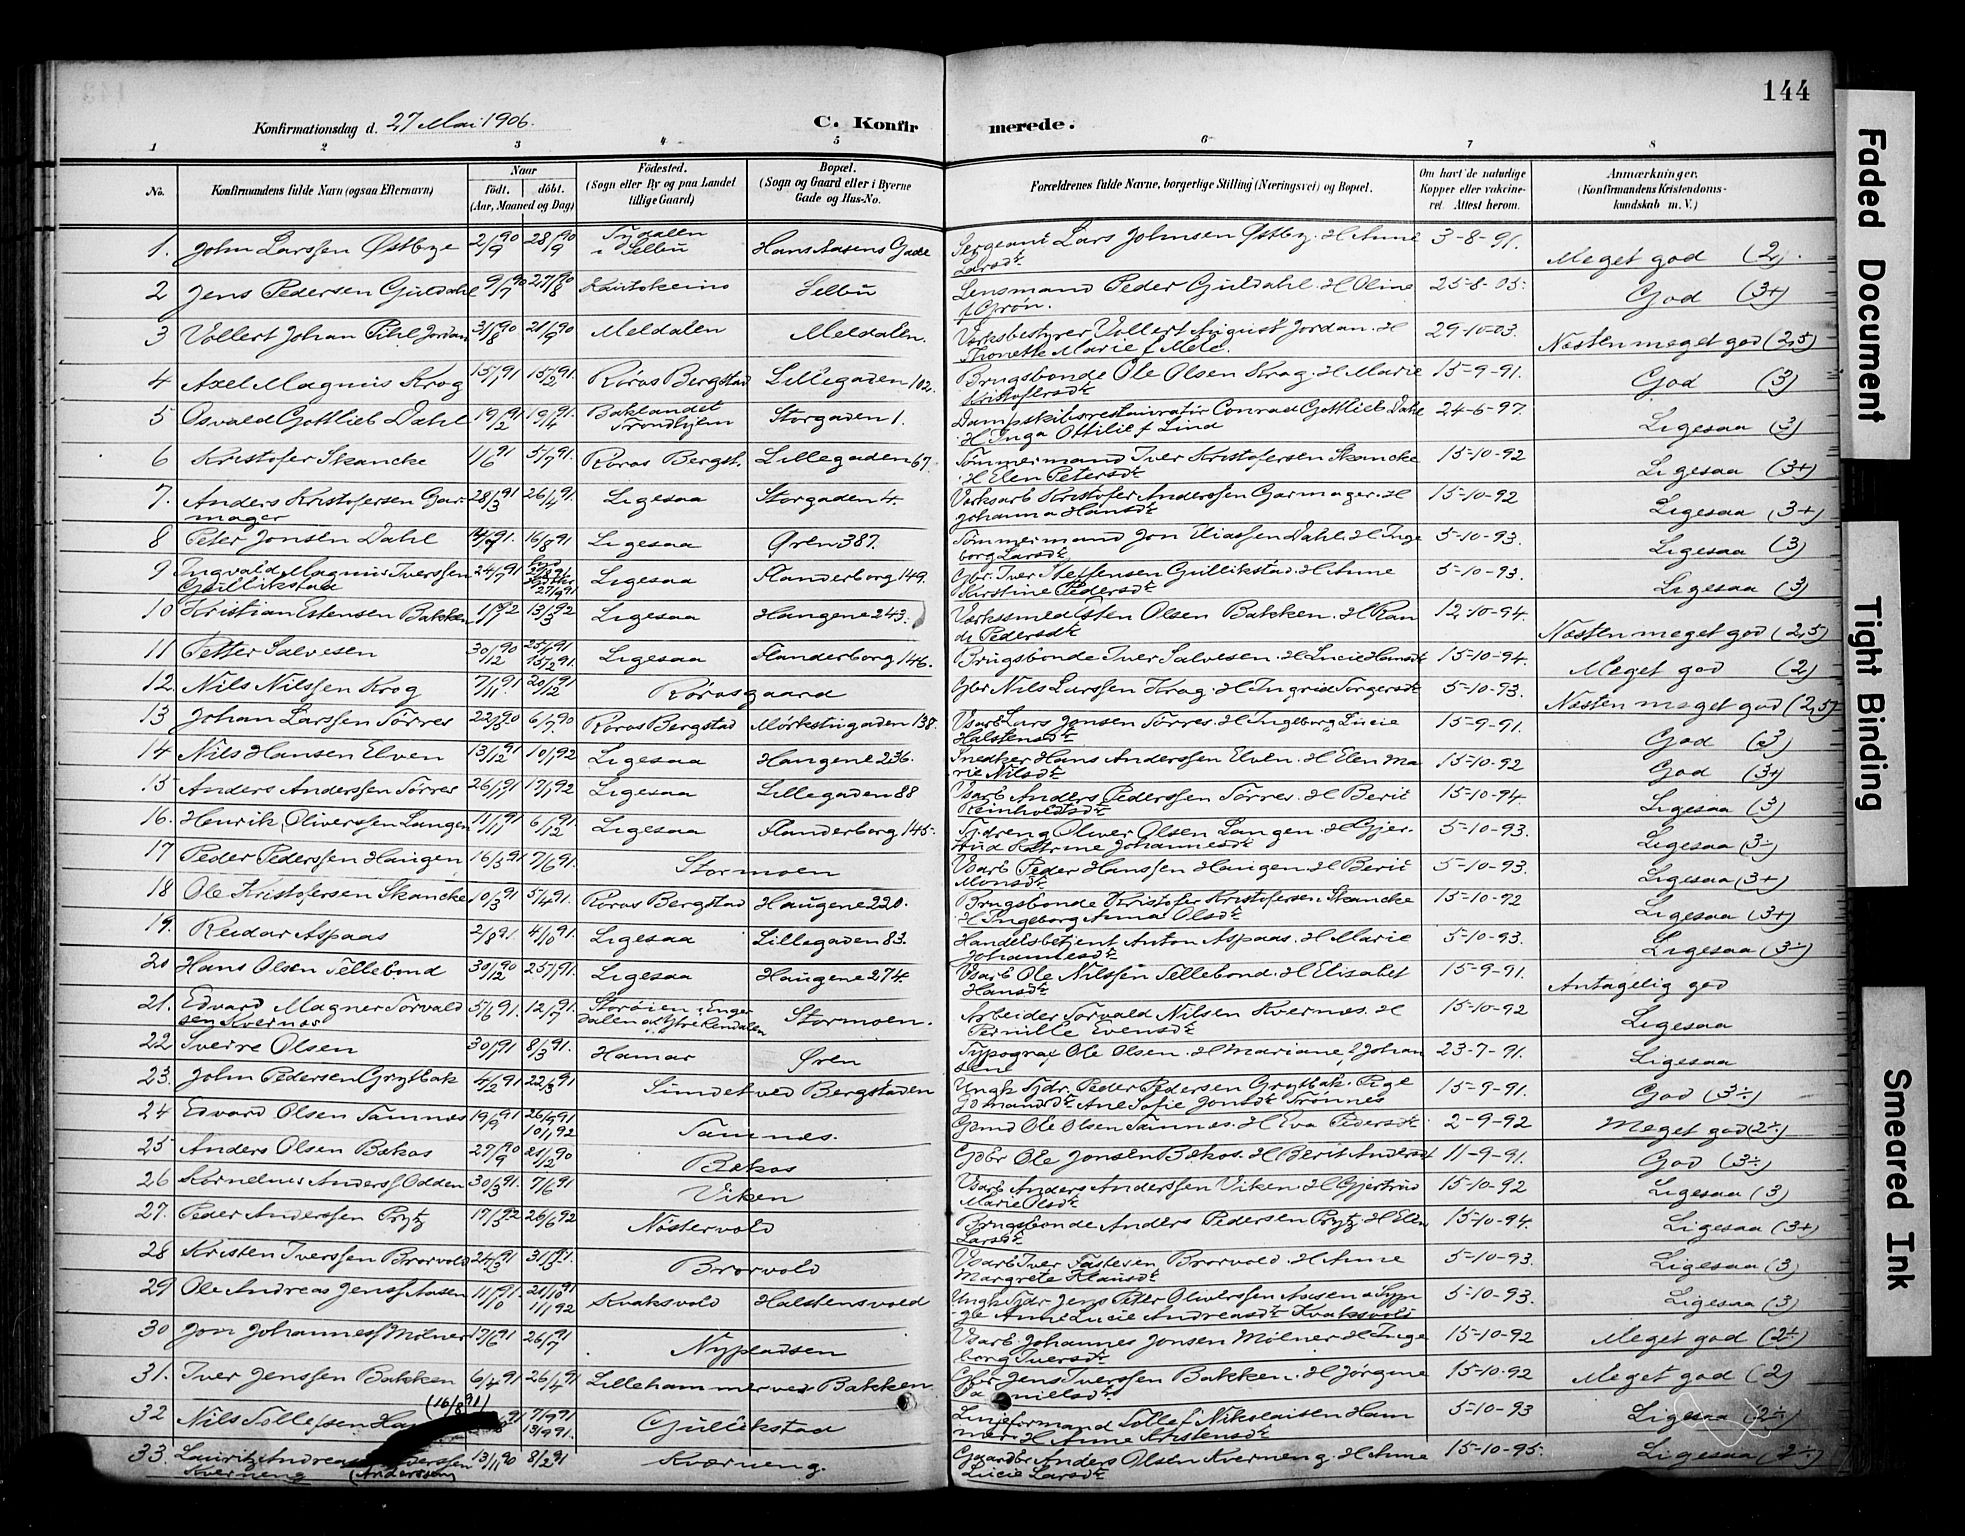 144
Konfirmationsdag d. 27 Mai 1906.
C. Konfirmerede.
1 2 3 4 5 6 7 8
No. Konfirmandens fulde Navn (ogsaa Efternavn) Naar født. døbt. (Aar, Maaned og Dag) Fødested. (Sogn eller By og paa Landet tillige Gaard) Bopæl. (Sogn og Gaard eller i Byerne Gade og Hus-No. Forældrenes fulde Navne, borgerlige Stilling (Næringsvei) og Bopæl. Om havt de naturlige Kopper eller vakcineret. Attest herom. Anmærkninger. (Konfirmandens Kristendomskundskab m. V.)
1. John Larssen Østbye 2/9 90 28/9 90 Tydalen i Selbu Hans Aasens Gade Sergeant Lars Johnsen Østby. H Anne Larsdt 3-8-91. Meget god (2).
2 Jens Pedersen Guldahl 9/7 90 27/8 90 Kautokeino Selbu Lensmand Peder Guldahl. H Oline f Grøn. 25-8-05. God (3+)
3 Vollert Johan Pihl Jordan 31/8 90 21/9 90 Meldalen Meldalen. Værksbestyrer Vollert August Jordan. H Thonette Marie f Mele. 29-10-03. Næsten meget god (2,5)
4 Axel Magnus Krog 15/1 91 15/2 91. Røros Bergstad Lillegaden 102. Brugsbonde Ole Olsen Krog. H Marie Kristofersdt 15-9-91. God (3)
5 Osvald Gottlieb Dahl 19/2 91 19/4 91. Baklandet Trondhjem Storgaden 1. Dampskibsrestauratør Conrad Gottlieb Dahl H Inga Ottilie f Lind 24-6-97. Ligesaa (3)
6 Kristofer Skancke 1/6 91 5/7 91. Røros Bergst. Lillegaden 67. Tømmermand Iver Kristofersen Skancke H Elen Petersdt 15-10-92 Ligesaa (3+)
7. Anders Kristofersen Garmager 28/3 91 26/4 91. Ligesaa Storgaden 4. Verksarb Kristofer Anderssen Garmager. H Johanna Hansdt 15-10-92 Ligesaa (3+)
8 Peter Jonsen Dahl 14/7 91. 16/8 91 Ligesaa Øren 387. Tømmermand Jon Eliassen Dahl. H Ingeborg Larsdt 5-10-93. Ligesaa (3)
9 Ingvald Magnus Iverssen Gullikstad 24/7 91 Ligesaa Flanderborg 149. Gbr. Iver Steffensen Gullikstad. H Anne Kirstine Pedersdt 5-10-93. Ligesaa (3)
10 Kristian Estensen Bakken 1/1 92 13/3 92 Ligesaa Haugene 243. Værkssmed Esten Olsen Bakken. H Randi Pedersdt 12-10-94. Næsten meget god (2,5)
11 Petter Salvesen 30/12 90 25/1 91 15/2 91. Ligesaa Flanderborg 146. Brugsbonde Iver Salvesen. H Lucie Hansdt 15-10-94. Meget god (2)
12. Nils Nilssen Krog 7/11 91 20/12 91 Rørosgaard Gbr Nils Larssen Krog. H Ingrid Torgersdt 5-10-93. Næsten meget god (2,5)
13 Johan Larssen Tørres 22/5 90 6/7 90 Røros Bergstad Mørkstugaden 138. Vsarb Lars Jonsen Tørres. H Ingeborg Lucie Halstensdt 15-9-91. God (3)
14 Nils Hansen Elven 13/12 91 10/1 92 Ligesaa Haugene 236. Snedker Hans Anderssen Elven. H Elen Marie Nilsdt 15-10-92 God (3+)
15 Anders Anderssen Tørres 26/11 91 17/1 92 Ligesaa Lillegaden 88 Vsarb Anders Pederssen Tørres. H Berit Reinholdtsdt 15-10-94. Ligesaa (3)
16. Henrik Oliverssen Langen 11/11 91 6/12 91. Ligesaa Flanderborg 145. Tjdreng Oliver Olsen Langen. H Gjertrud Katrine Johannesdt 5-10-93. Ligesaa (3÷)
17 Peder Pederssen Haugen 16/3 91 7/6 91. Stormoen Vsarb Peder Hanssen Haugen. H Berit Monsdt 5-10-93. Ligesaa (3+)
18 Ole Kristofersen Skancke 10/3 91 5/4 91. Røros Bergstad Haugene 220. Brugsbonde Kristofer Kristofersen Skancke H Ingeborg Anna Olsdt 15-10-92 Ligesaa (3+)
19. Reidar Aspaas 2/8 91. 4/10 91. Ligesaa Lillegaden 83. Handelsbetjent Anton Aspaas. H Marie Johannesdt 5-10-93. Ligesaa (3÷)
20 Hans Olsen Tellebond 30/12 90 25/1 91. Ligesaa Haugene 274. Vsarb Ole Nilssen Tellebond. H Elisabet Hansdt 15-9-91. Antagelig god
21. Edvard Magner Torvaldsen Kvernes 5/6 91. 12/7 91. Storøien i Engerdalen Ytre Rendalen Stormoen. Arbeider Torvald Nilsen Kvernes. H Pernille Evensdt 15-10-92 Ligesaa
22 Sverre Olsen 30/1 91 8/3 91. Hamar Øren Typograf Ole Olsen. H Mariane f Johansene 23-7-91. Ligesaa
23. John Pedersen Grytbak 4/2 91 22/3 91 Sundet ved Bergstaden Ungk Tjdr. Peder Pedersen Grytbak. Pige Gdmandsdt Ane Sofie Jonsdt Trønnes 15-9-91. God (3÷)
24 Edvard Olsen Tamnes 19/9 91 26/9 91 10/1 92 Tamnes. Gdmd Ole Olsen Tamnes. H Eva Pedersdt 2-9-92 Meget god (2÷)
25 Anders Olsen Bækos 27/9 90 21/2 90 Bækos Gdbr Ole Jonsen Bækos. H Berit Andersdt 11-9-91. God (3÷)
26 Kornelius Anderss Odden 30/3 91. 7/6 91 Viken Vsarb Anders Anderssen Viken. H Gjertrud Marie Olsdt 15-10-92 Ligesaa (3)
27. Peder Anderssen Prytz 17/5 92 26/6 92 Nøstervold Brugsbonde Anders Pedersen Prytz. H Elen Larsdt 15-10-94. Ligesaa (3+)
28 Kristen Iverssen Brorvold 24/3 91 31/5 91. Brorvold Vsarb Iver Fastesen Brorvold. H Anne Margrete Klausdt 5-10-93. Ligesaa (3)
29 Ole Andreas Jenss Aasen 11/10 91 21/10 91 11/1 92 Kvaksvold Halstensvold Ungk Tjdr. Jens Peter Oliverssen Aasen Pige Anne Lucie Andreasdt Kvaksvold 5-10-93. Ligesaa (3)
30 Jon Johanness Mølner 17/6 91 26/7 91 Nypladsen Vsarb. Johannes Jonsen Mølner. H Ingeborg Iversdt 15-10-92 Meget god (2÷)
31. Iver Jenssen Bakken 6/4 91 26/4 91 Lillehammer ved Bakken Gbr Jens Iverssen Bakken. H Jørgine Danielsdt 15-10-92 Meget god (2)
32 Nils Tollefsen Ham (16/8 91) 7/9 91 13/9 91. Gullikstad Linjeformand Tollef Nikolaisen Hammer. H Anne Kristensdt 5-10-93 Ligesaa (2÷)
33. Lauritz Andreas Anderssen Kverneng (Anderssen) 13/11 90 8/2 91 Kværneng. Gaardbr Anders Olsen Kverneng. H Anne Lucie Larsdt 15-10-95. Ligesaa (2÷)
Faded Document
Tight Binding
Smeared Ink